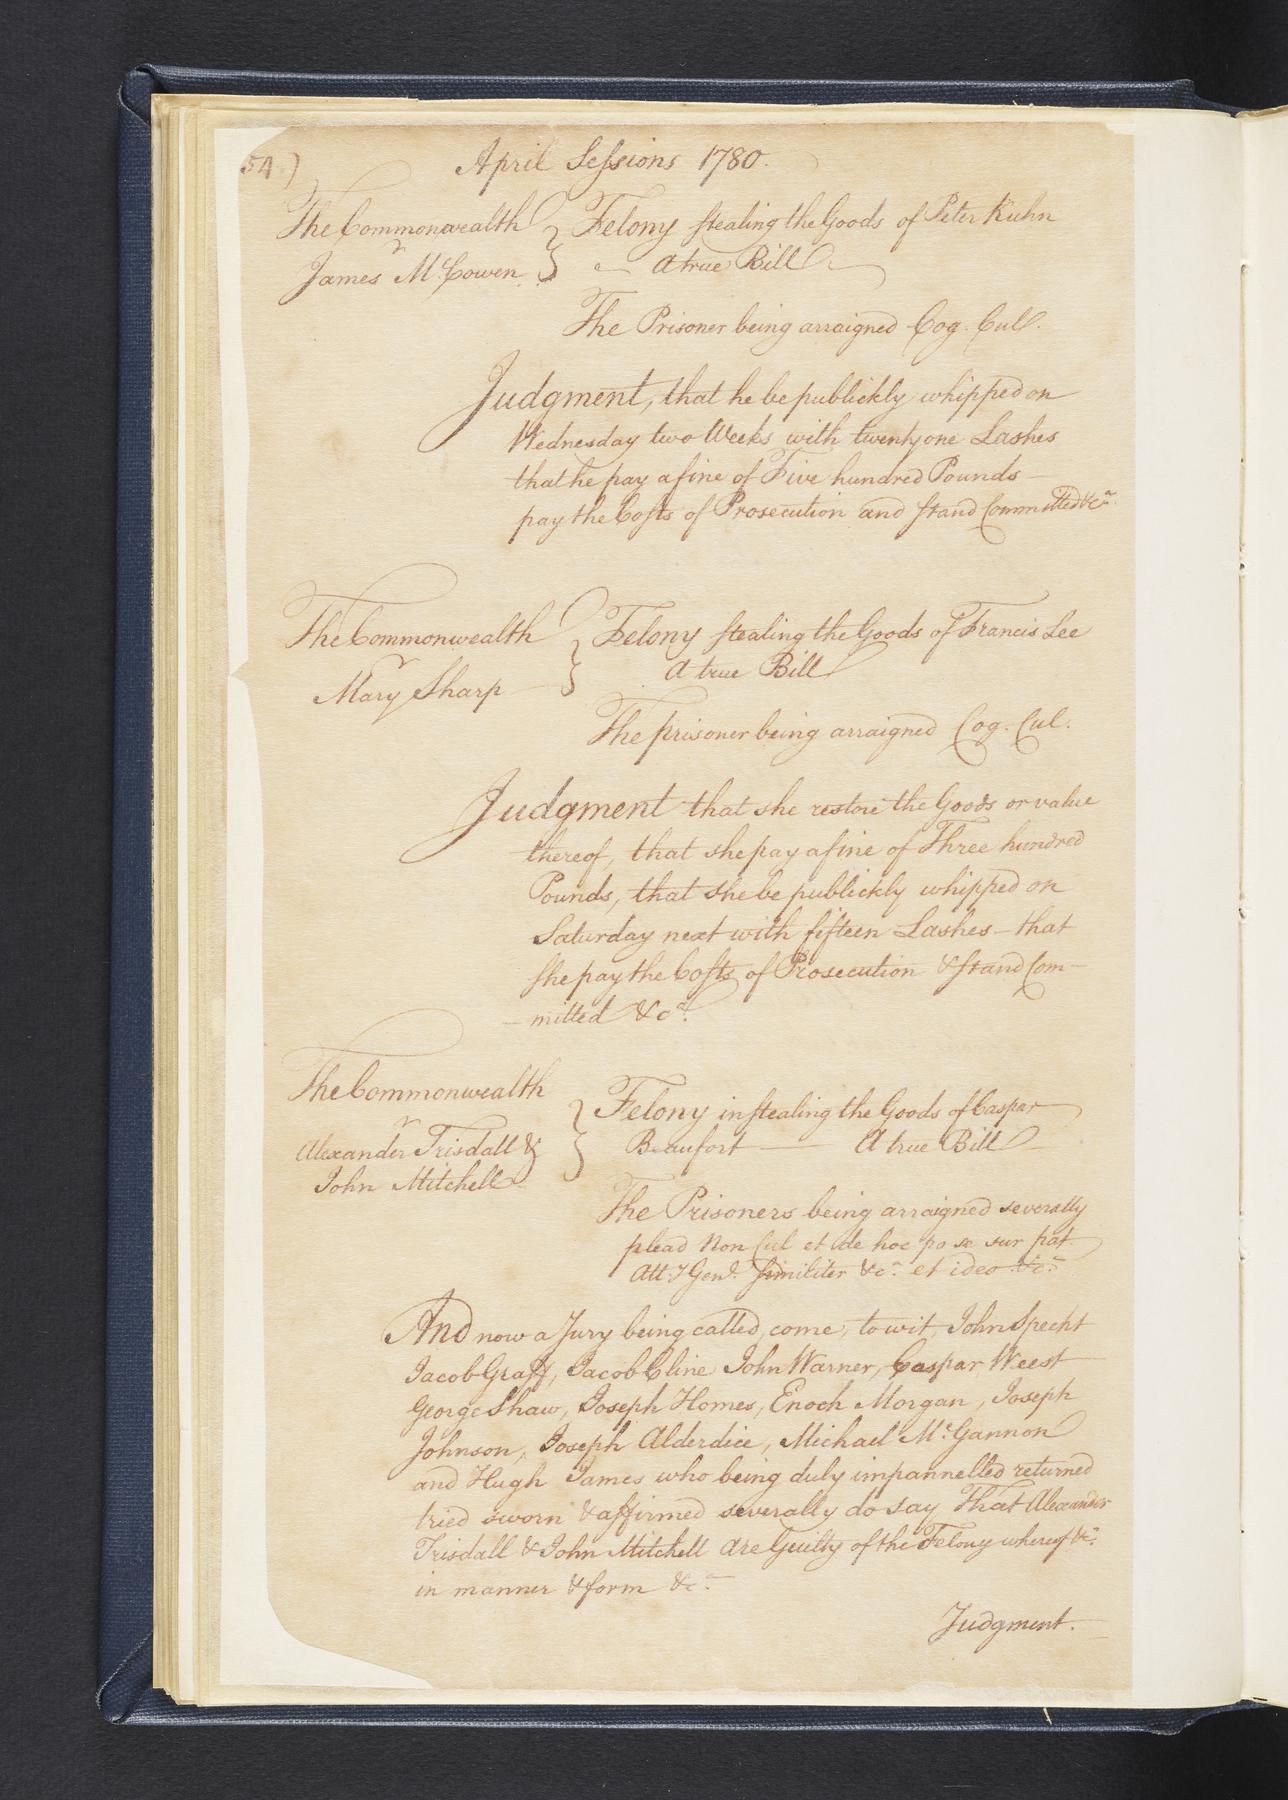 54.)
April Sessions 1780.
The Commonwealth } Felony stealing the Goods of Peter Kuhn
v
James McCowen } A true Bill
The Prisoner being arraigned Cog. Cul.
Judgment, that he be publickly whipped on
Wednesday two Weeks with twenty one Lashes
that he pay a fine of Five hundred Pounds –
pay the Costs of Prosecution and stand Committed &ca.
The Commonwealth } Felony stealing the Goods of Francis Lee
v
Mary Sharp } A true Bill
The prisoner being arraigned Cog. Cul.
Judgment that she restore the Goods or value
thereof, that she pay a fine of Three hundred
Pounds, that she be publickly whipped on
Saturday next with fifteen Lashes – that
she pay the Costs of Prosecution & stand Com-
-mitted &ca.
The Commonwealth
v
} Felony in stealing the Goods of Caspar
Alexander Trisdall & } Beaufort —— A true Bill
John Mitchell
The Prisoners being arraigned severally
plead Non Cul et de hoc po se sur pat
Atty Genl. similiter &ca. et ideo &ca.
And now a Jury being called, come, to wit, John Specht
Jacob Graff, Jacob Cline John Warner, Caspar Weest
George Shaw, Joseph Homes, Enoch Morgan, Joseph
Johnson, Joseph Alderdice, Michael McGannon
and Hugh James who being duly impannelled returned
tried sworn & affirmed severally do say That Alexander
Trisdall & John Mitchell are Guilty of the Felony whereof &ca.
in manner & form &ca.
Judgment.